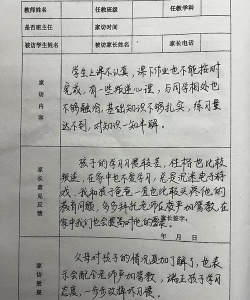 教师姓名 任教班级 任教学科
是否班主任 家访时间
被访学生姓名 被访家长姓名 家长电话
家访内容
学生上课不认真，课下作业也不能按时
完成，有一些叛逆心理，与同学相处也
不够融洽，基础知识不够扎实，练习量
达不到，对知识一知半解。
家长意见反馈
孩子的学习习惯较差，性格也比较
叛逆，在家中也不爱学习，总是沉迷电子游
戏，我和孩子爸爸一直也比较头疼他的
教育问题，多多拜托老师在学校加管教，在
家中我们也会
家长签字：
年 月 日
家访效果
父母对孩子的情况更加了解了，也表
示会配合老师严加管教，端正孩子学习
态度，一步步改掉坏习惯。